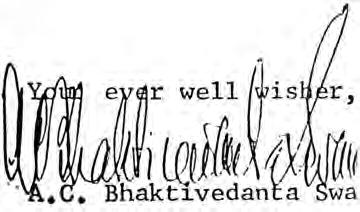 Your ever well wisher,
A.C. Bhaktivedanta Swami
A.C. Bhaktivedanta Swa